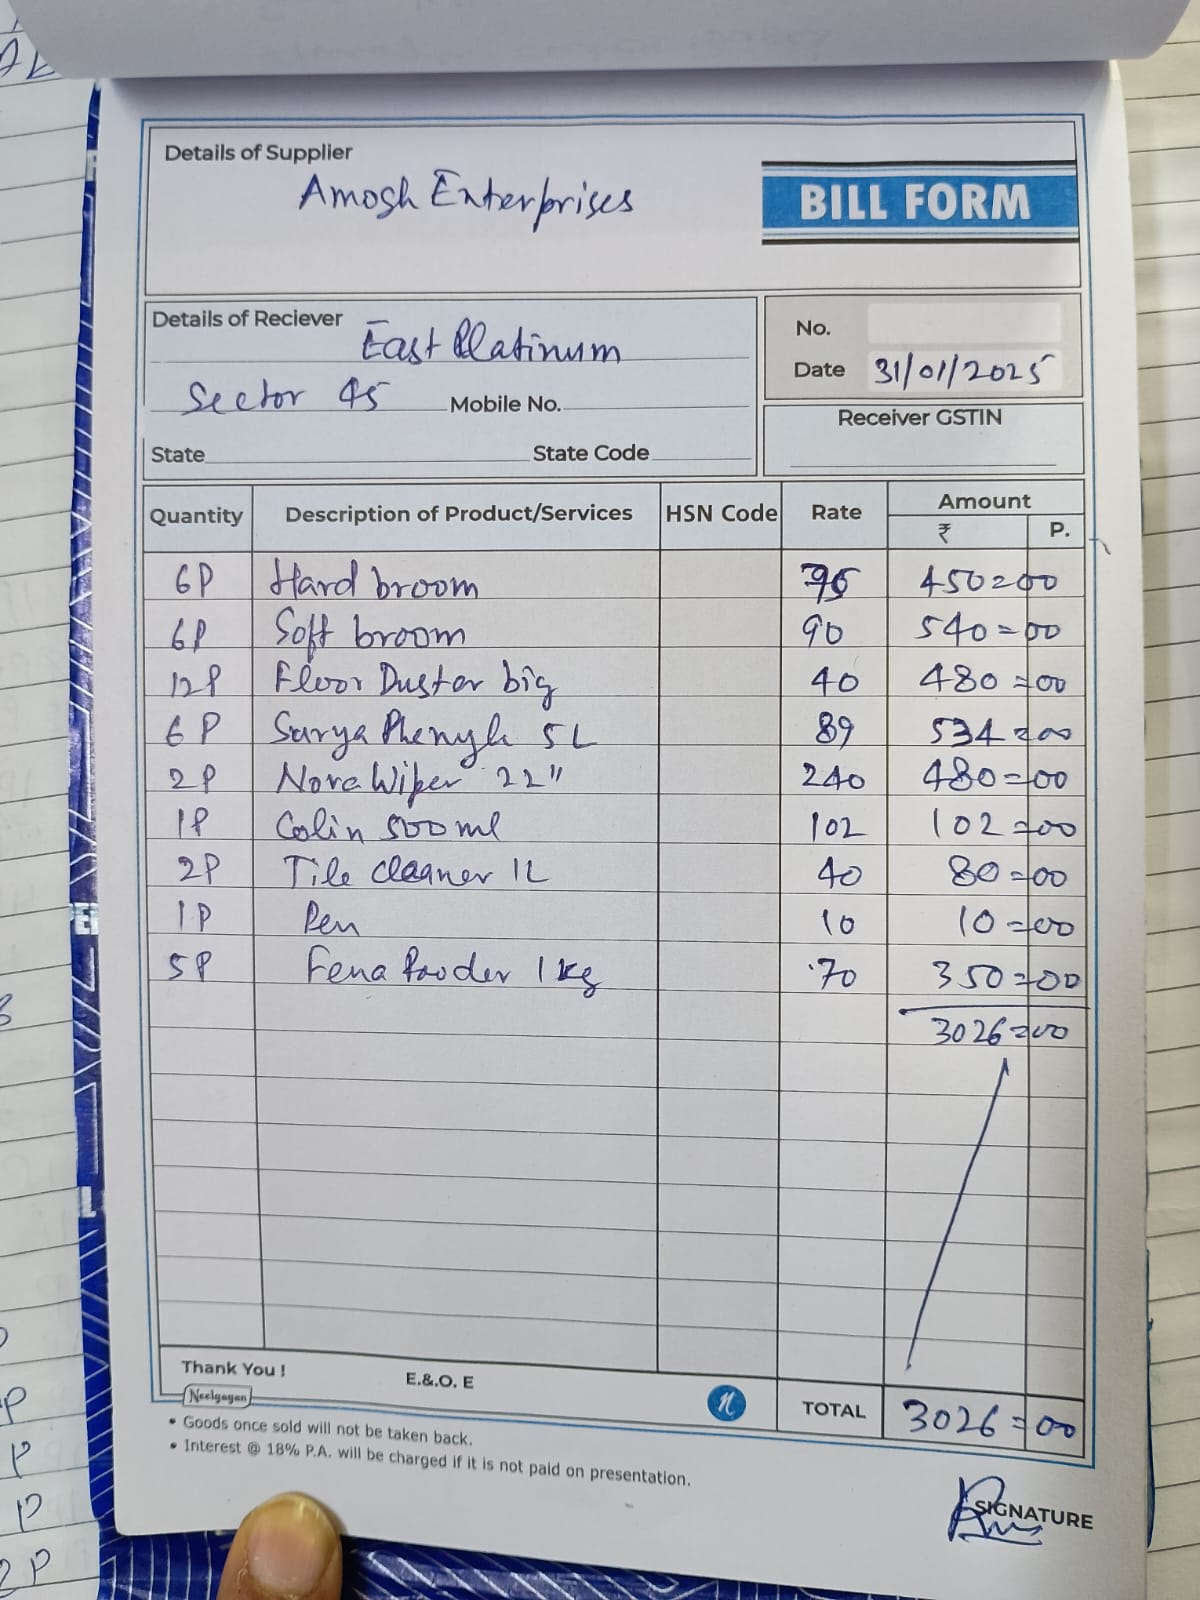 Details of Supplier
Amosh Enterprises
BILL FORM
Details of Reciever East Platinum
Sector 45 Mobile No.
State State Code
No.
Date 31/01/2025
Receiver GSTIN
Quantity Description of Product/Services HSN Code Rate Amount
₹ P.
6P Hard broom 75 450=00
6P Soft broom 90 540=00
12P Floor Duster big 40 480=00
6P Surya Phenyle 5L 89 534=00
2P Nova Wiper 22" 240 480=00
1P Colin 500ml 102 102=00
2P Tile cleaner 1L 40 80=00
1P Pen 10 10=00
5P Fena Powder 1kg 70 350=00
3026=00
Thank You !
E.&.O. E
n
TOTAL 3026=00
Neelgagan
• Goods once sold will not be taken back.
• Interest @ 18% P.A. will be charged if it is not paid on presentation.
SIGNATURE
P
P
P
2P